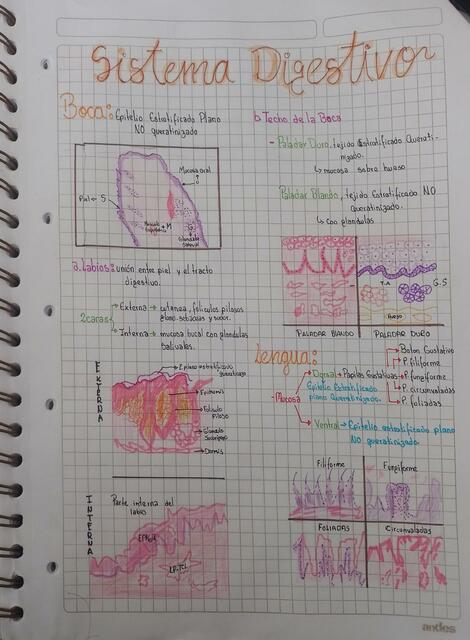 Sistema Digestivo
Boca: Epitelio Estratificado Plano
NO queratinizado
Mucosa oral
Piel ← S
M
G
a. Labios: unión entre piel y el tracto
digestivo.
2 caras
Externa → cutanea, folículos pilosos
gland. sebaceas y sudor.
Interna → mucosa bucal con glandulas
salivales.
EXTERNA
Epidermis
Folículo
Piloso
Glandula
Sebacea
Dermis
INTERNA
Parte interna del
labio
b. Techo de la Boca
- Paladar Duro, tejido Estratificado Querati-
nizado.
↳ mucosa sobre hueso
Paladar Blando, tejido Estratificado NO
Queratinizado.
↳ Con glandulas
T.A
G.S
Hueso
PALADAR BLANDO
PALADAR DURO
Lengua:
Mucosa
Dorsal → Papilas Gustativas
Epitelio Estratificado
plano Queratinizado.
Boton Gustativo
P. filiforme
P. fungiforme
P. circunvaladas
P. foliadas
Ventral → Epitelio estratificado plano
NO queratinizado.
Filiforme
Fungiforme
FOLIADAS
Circunvaladas
andes